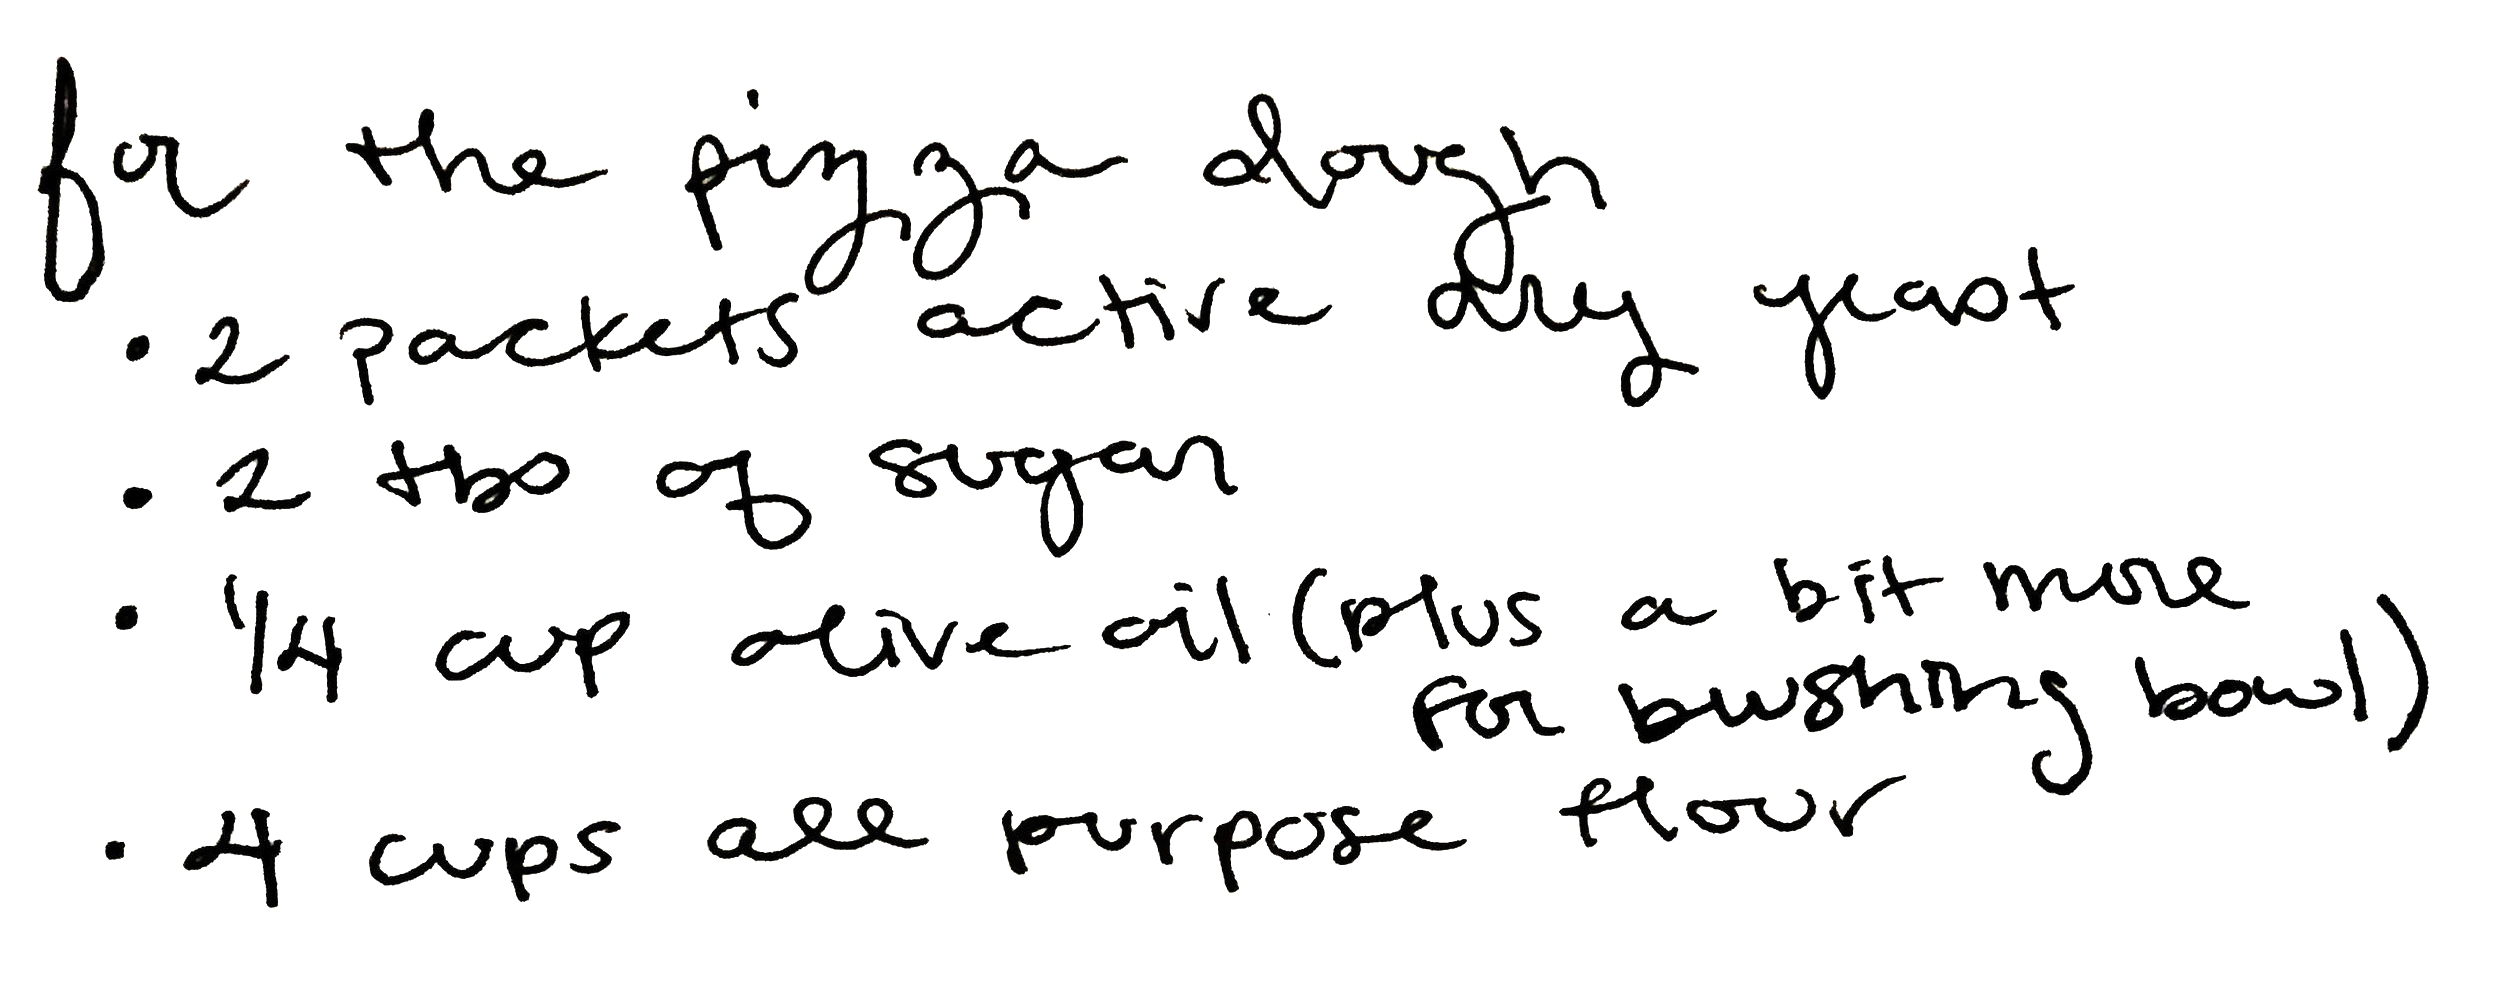 for the pizza dough
• 2 packets active dry yeast
• 2 tbs of sugar
• 1/4 cup olive oil (plus a bit more
for brushing bowl)
• 4 cups all purpose flour